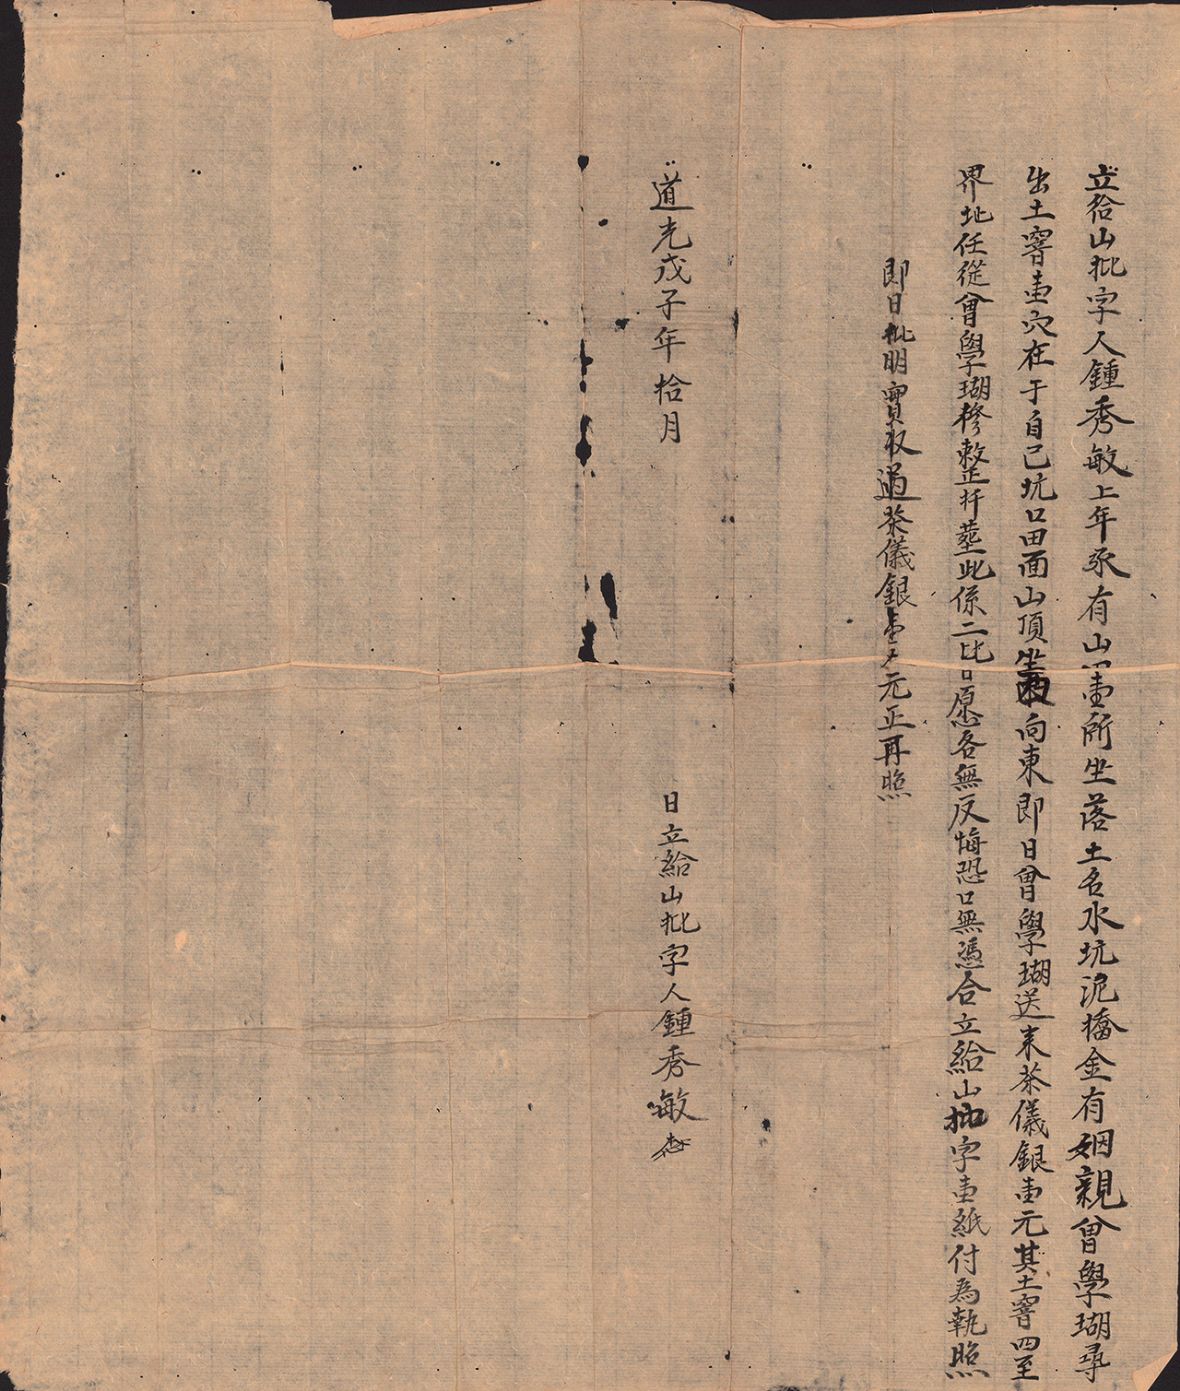 立給山批字人鍾秀敏上年承有山壹所坐落土名水坑泥墦金有姻親曾學瑚尋
出土窨壹穴在于自己坑口田面山頂坐西向東即日曾學瑚送来茶儀銀壹元其土窨四至
界址任從曾學瑚修整扦塟此係二比甘愿各無反悔恐口無憑合立給山批字壹紙付為執照
即日批明實收過茶儀銀壹大元正再照
道光戊子年拾月
日立給山批字人鍾秀敏